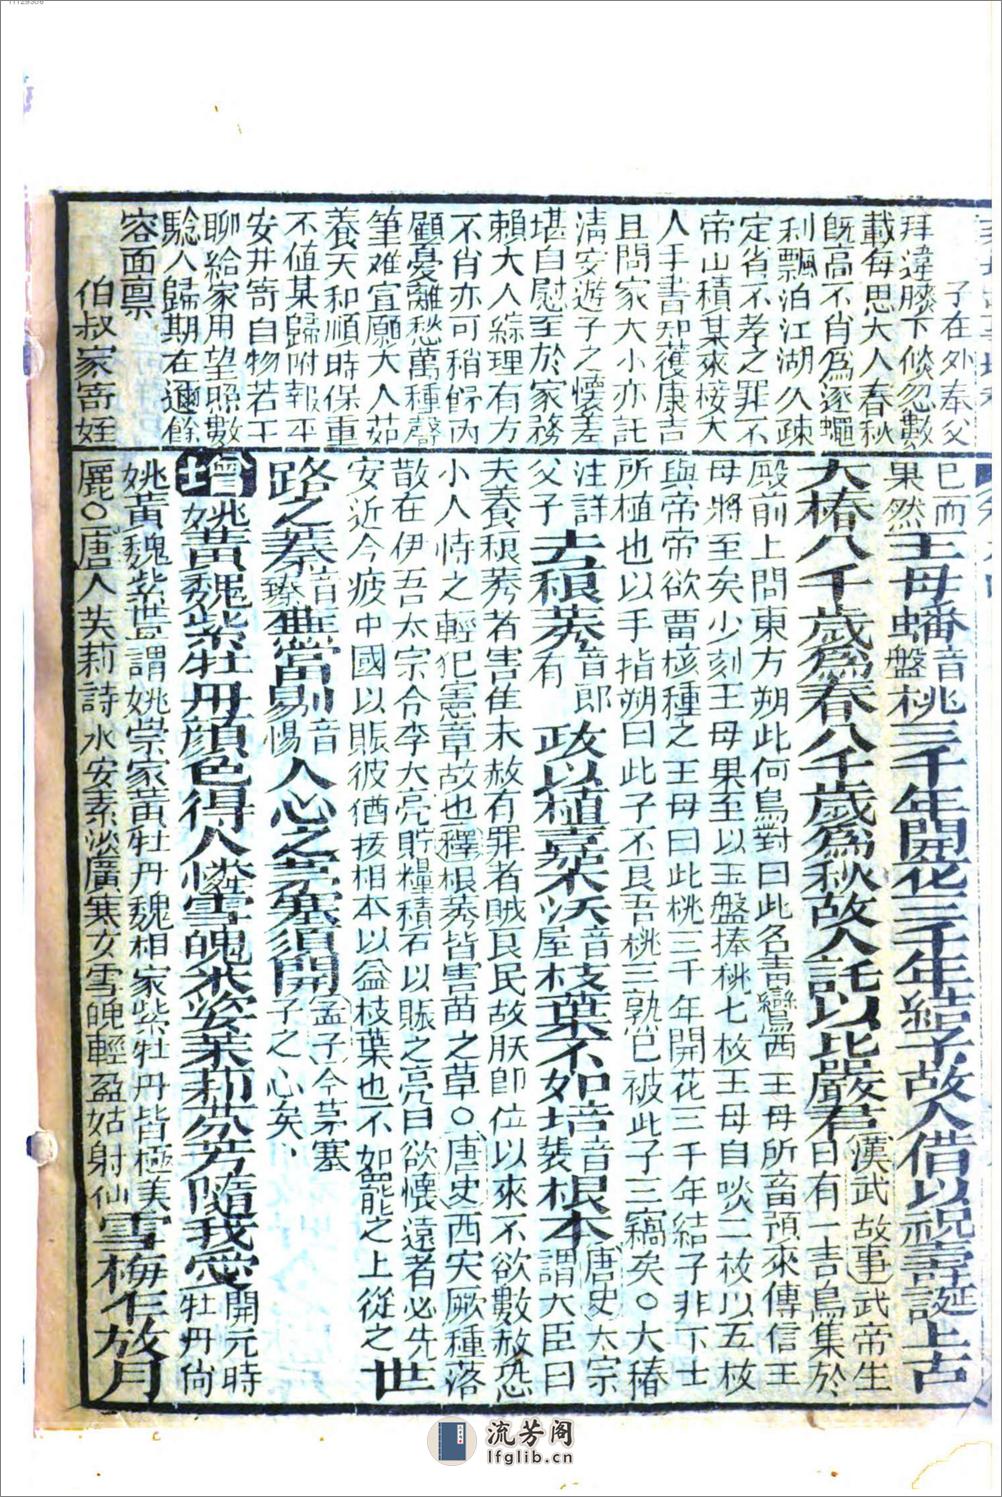 子在外奉父
拜違膝下倐忽數
載每思大人春秋
旣高不肖爲逐蠅
利飄泊江湖久疎
定省不孝之罪不
帝山積某來接大
人手書知獲康吉
且問家大小亦託
淸安遊子之懷差
堪自慰至於家務
賴大人綜理有方
不肖亦可稍舒內
顧憂離愁萬種聲
筆难宣願大人茹
養天和順時保重
不値某歸附報平
安并寄自物若干
聊給家用望照數
騐入歸期在邇餘
容面禀
伯叔家寄姪
已而
果然王母蟠音盤桃三千年開花三千年結子故人借以祝壽誕上古
大椿八千歲爲春八千歲爲秋故人託以比嚴君漢武故事武帝生日有一吉鳥集於
殿前上問東方朔此何鳥對曰此名靑鸞西王母所畜預來傳信王
母將至矣少刻王母果至以玉盤捧桃七枚王母自啖二枚以五枚
與帝帝欲畱核種之王母曰此桃三千年開花三千年結子非下土
所植也以手指朔曰此子不良吾桃三熟已被此子三竊矣○大椿
注詳父子去稂莠音郎有政以植嘉禾沃屋枝葉不如培音裴根本唐史太宗謂大臣曰
夫養稂莠者害隹禾赦有罪者賊良民故朕卽位以來不欲數赦恐
小人恃之輕犯憲章故也釋稂莠皆害苗之草○唐史西突厥種落
散在伊吾太宗令李大亮貯糧積石以賑之亮曰欲懷遠者必先
安近今疲中國以賑彼猶拔相本以益枝葉也不如罷之上從之世
路之蓁音臻蕪當剔音惕人心之茅塞須開孟子今茅塞子之心矣
增姚黃魏紫牡丹顔色得人憐雪魄氷姿茉莉芬芳隨我愛開元時牡丹尚
姚黃魏紫世謂姚崇家黃牡丹魏相家紫牡丹皆極美
麗○唐人茉莉詩水安素淡廣寒女雪魄輕盈姑射仙雪梅乍放月
流芳阁
lfglib.cn